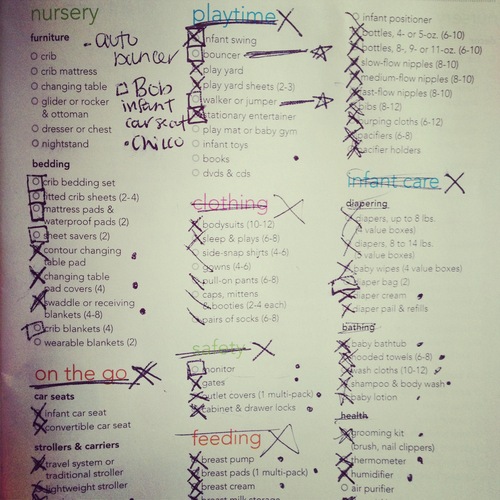 nursery
furniture
- auto
bouncer
crib
crib mattress
changing table
glider or rocker
& ottoman
dresser or chest
nightstand
Bob
infant
car seat
• Chicco
bedding
crib bedding set
fitted crib sheets (2-4)
mattress pads &
waterproof pads (2)
sheet savers (2)
contour changing
table pad
changing table
pad covers (4)
swaddle or receiving
blankets (4-8)
crib blankets (4)
wearable blankets (2)
on the go
car seats
infant car seat
convertible car seat
strollers & carriers
travel system or
traditional stroller
lightweight stroller
playtime
infant swing
bouncer
play yard
play yard sheets (2-3)
walker or jumper
stationary entertainer
play mat or baby gym
infant toys
books
dvds & cds
clothing
bodysuits (10-12)
sleep & plays (6-8)
side-snap shirts (4-6)
gowns (4-6)
pull-on pants (6-8)
caps, mittens
& booties (2-4 each)
pairs of socks (6-8)
safety
monitor
gates
outlet covers (1 multi-pack)
cabinet & drawer locks
feeding
breast pump
breast pads (1 multi-pack)
breast cream
breast milk storage
infant positioner
bottles, 4- or 5-oz. (6-10)
bottles, 8-, 9- or 11-oz. (6-10)
slow-flow nipples (8-10)
medium-flow nipples (8-10)
fast-flow nipples (8-10)
bibs (8-12)
burping cloths (6-12)
pacifiers (6-8)
pacifier holders
infant care
diapering
diapers, up to 8 lbs.
(2 value boxes)
diapers, 8 to 14 lbs.
value boxes)
baby wipes (4 value boxes)
diaper bag (2)
diaper cream
diaper pail & refills
bathing
baby bathtub
hooded towels (6-8)
wash cloths (10-12)
shampoo & body wash
baby lotion
health
grooming kit
(brush, nail clippers)
thermometer
humidifier
air purifier